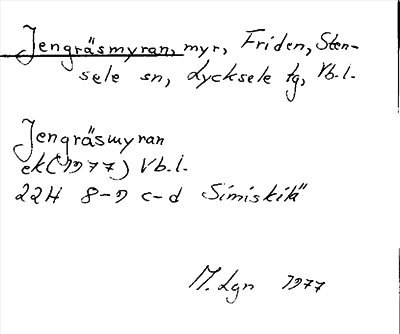 Jengräsmyran, myr, Friden, Sten-
sele sn, Lycksele tg, Vb.l.
Jengräsmyran
ek(1977) Vb.l.
22H 8-9 c-d Simiskilä
M.Lgn 1977